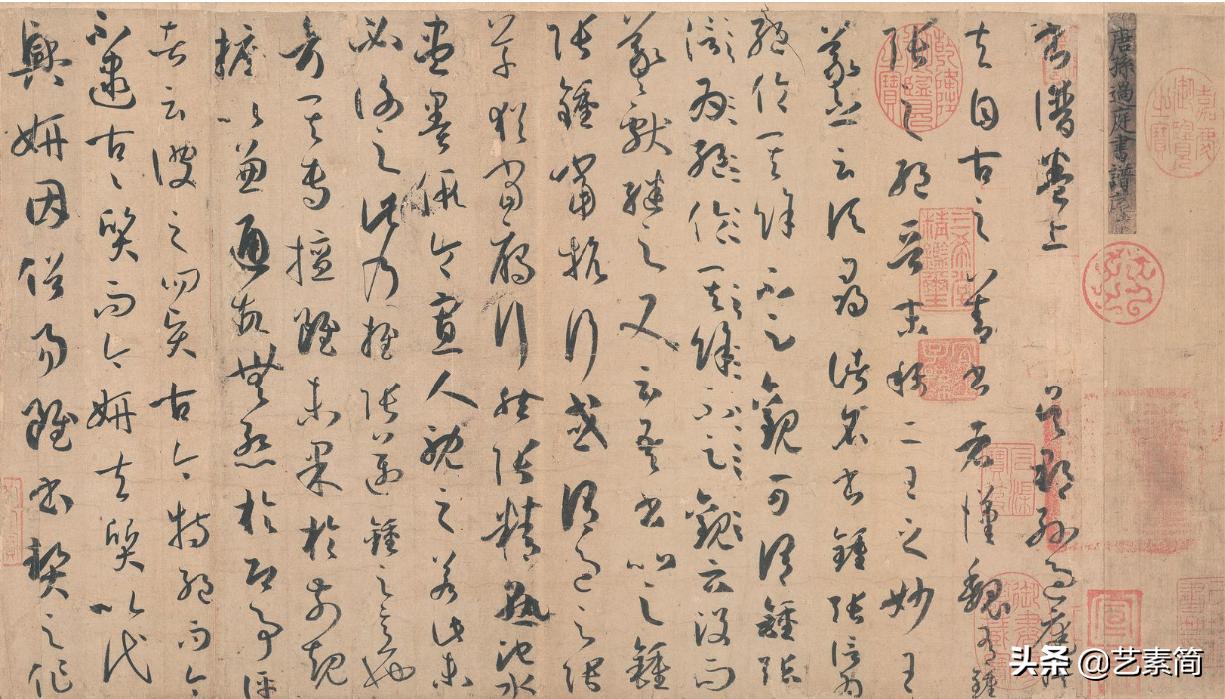 唐孫過庭書譜序
書譜卷上 吳郡孫過庭撰
夫自古之善書者漢魏有鍾
張之絕晉末稱二王之妙王
羲之云頃尋諸名書鍾張信為
絕倫其餘不足觀可謂鍾張
信為絕倫其餘不足觀云沒而
羲獻繼之又云吾書比之鍾
張鍾當抗行或謂過之張
草猶當雁行然張精熟池水
盡墨假令寡人耽之若此未
必謝之此乃推張邁鍾之意也
考其專擅雖未果於前規
摭以兼通故無慚於即事評
者云彼之四賢古今特絕而今
不逮古古質而今妍夫質以代
興妍因俗易雖書契之作
嘉慶御覽之寶
乾隆御覽之寶
三希堂精鑑璽
宜子孫
头条 @艺素简